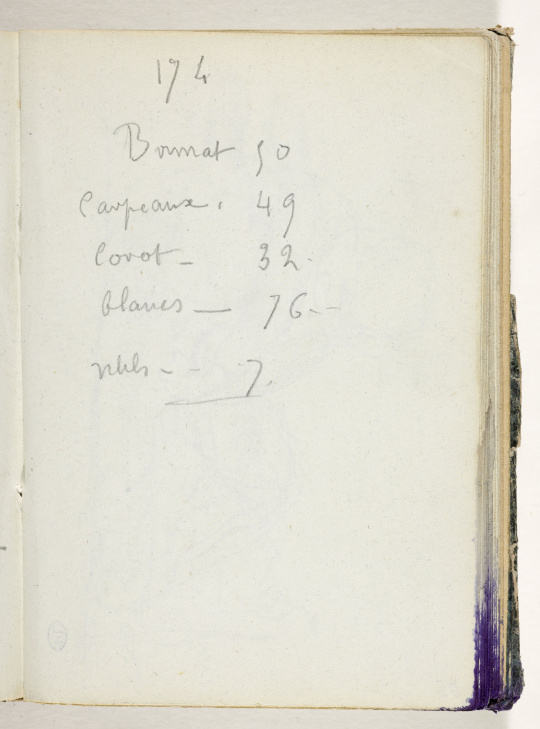 174
Bonnat 50
Carpeaux. 49
Corot - 32.
blancs — 76 - -
- - 7.